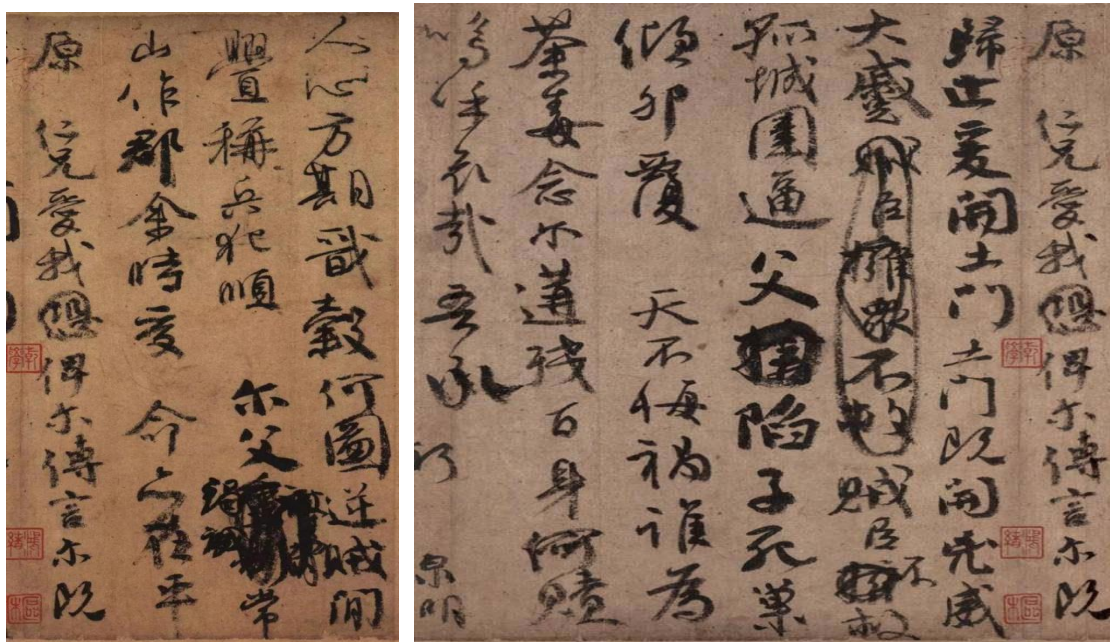 人心方期戩穀何圖逆賊間
釁稱兵犯順 尔父竭誠常
山作郡余時受 命亦在平
原 仁兄愛我恐俾尔傳言尔既
原 仁兄愛我恐俾尔傳言尔既
歸止爰開土門土門既開凶威
大蹙賊臣擁衆不救賊臣不擁救
孤城圍逼父擒陷子死巢
傾卵覆 天不悔禍誰為
荼毒念尔遘殘百身何贖
嗚乎哀哉 吾承
泉明